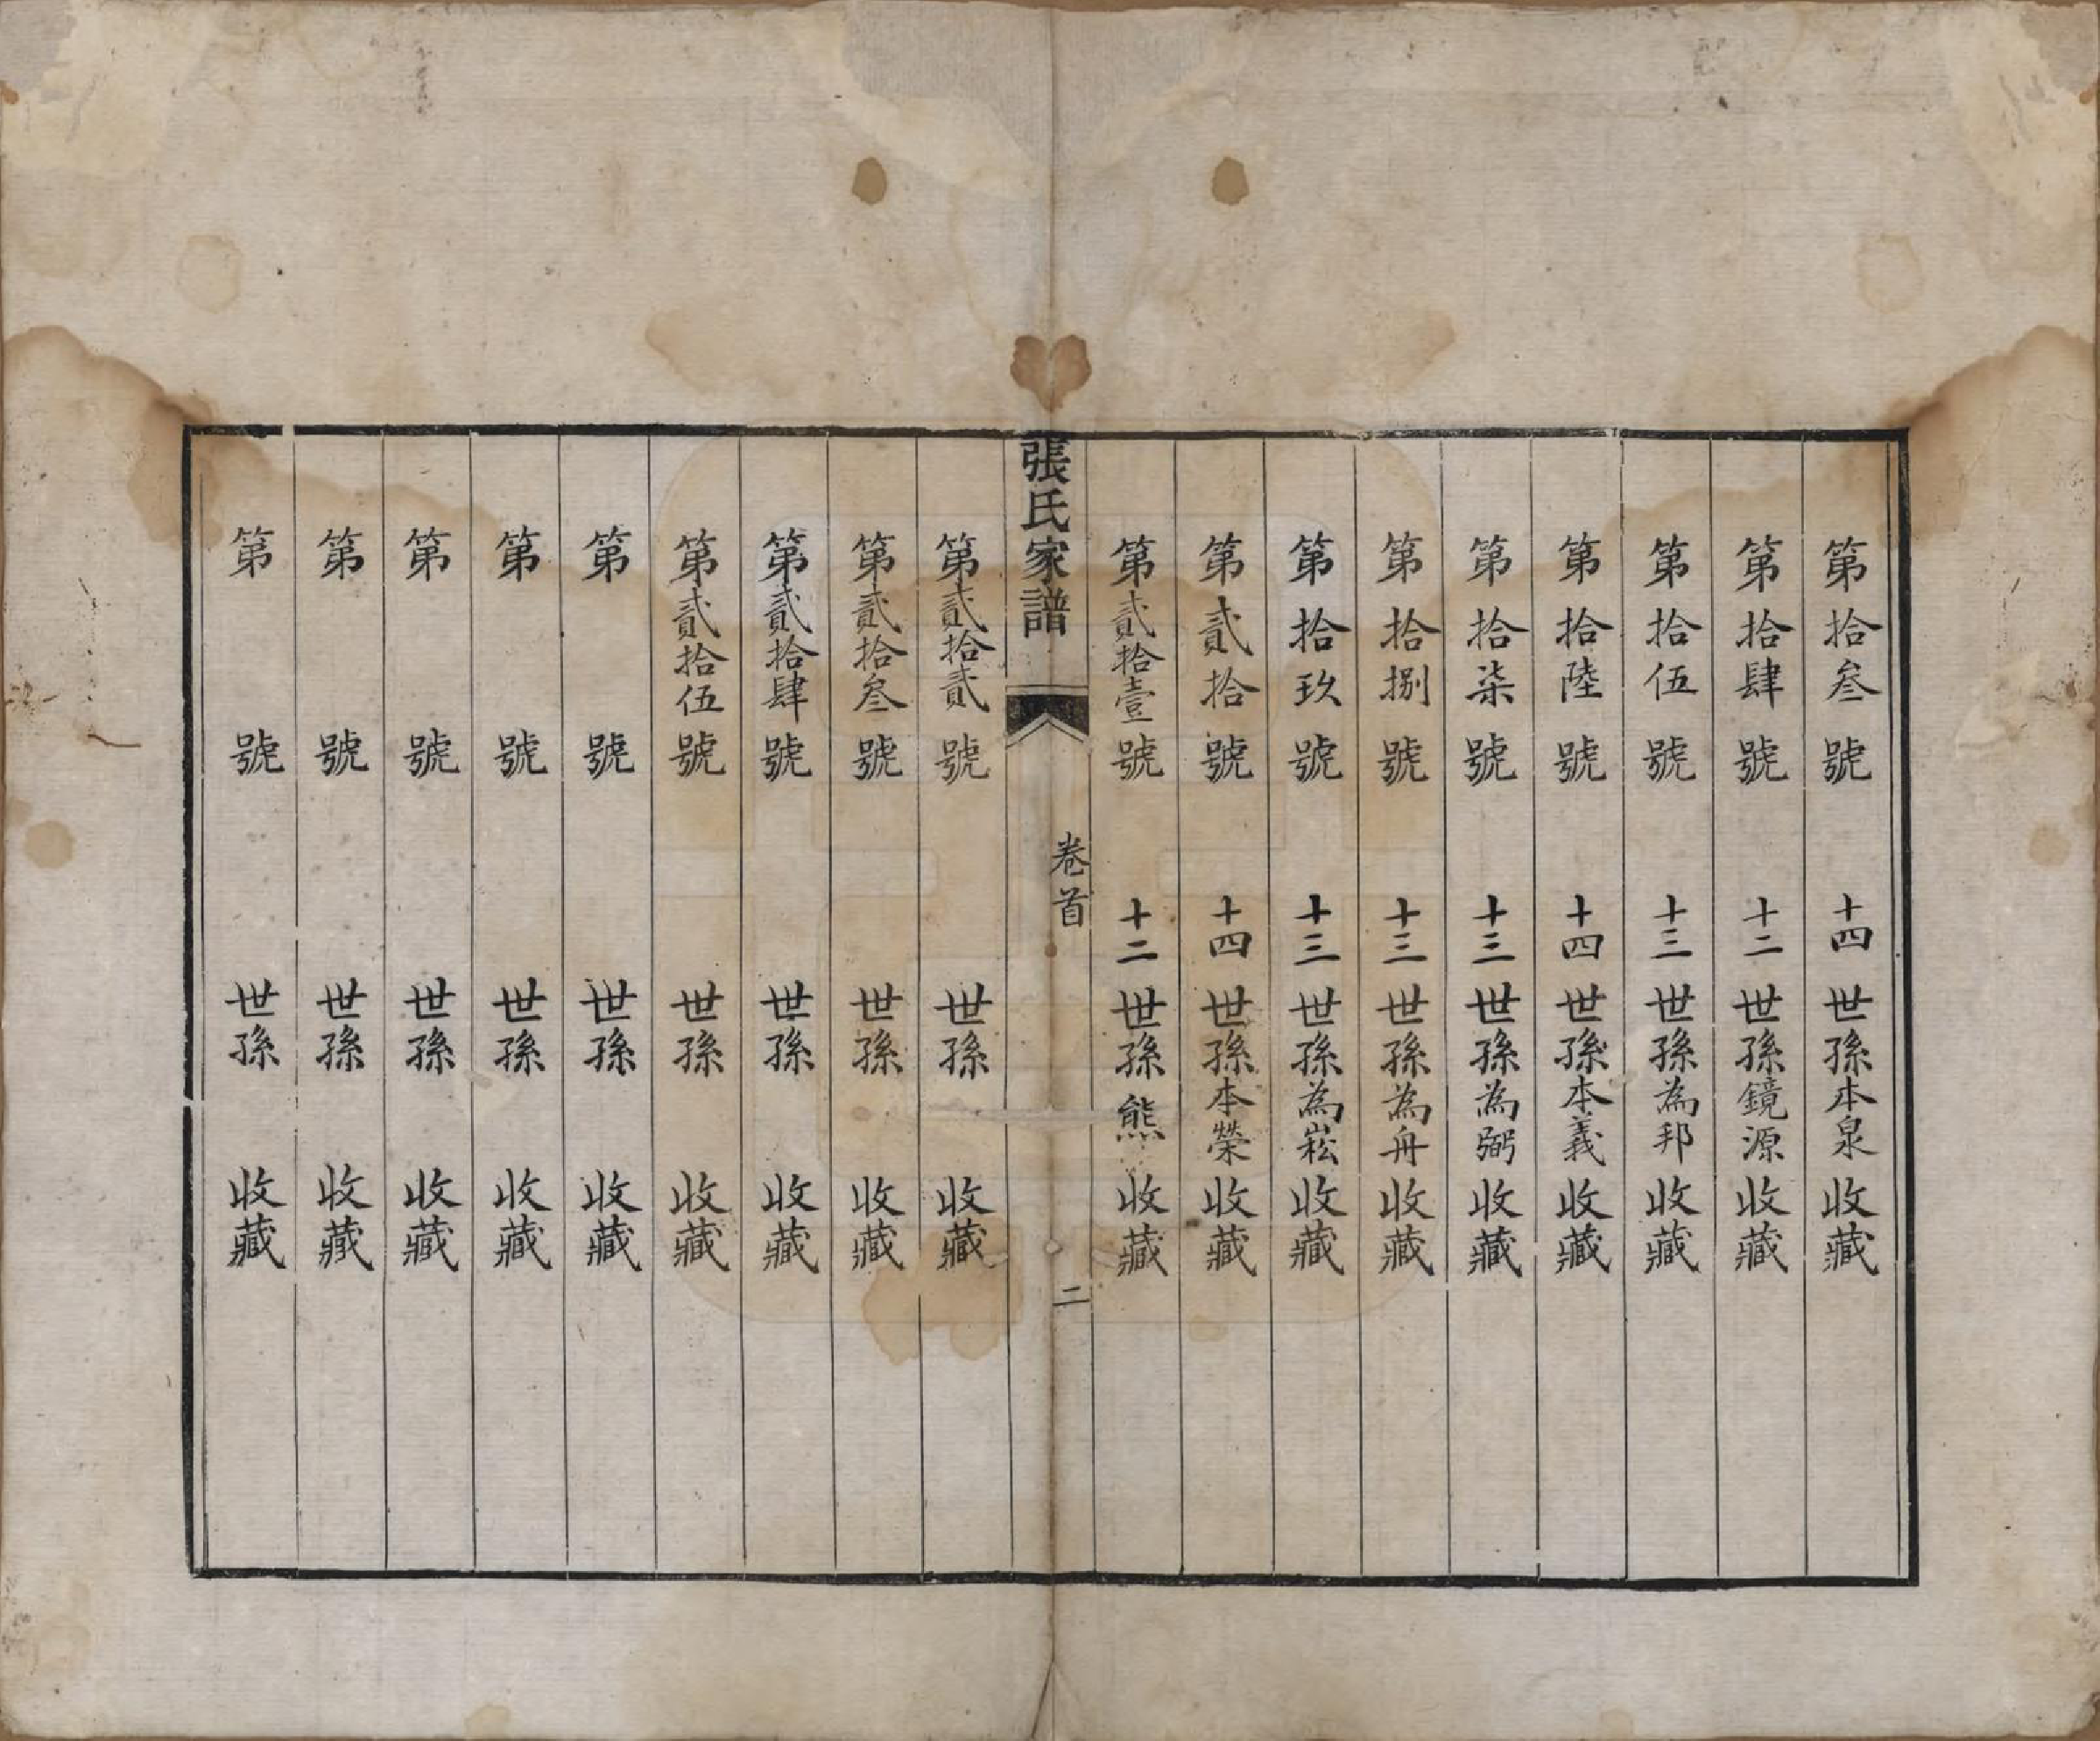 第拾叄號 十四世孫本泉收藏
第拾肆號 十二世孫鏡源收藏
第拾伍號 十三世孫為邦收藏
第拾陸號 十四世孫本義收藏
第拾柒號 十三世孫為弼收藏
第拾捌號 十三世孫為舟收藏
第拾玖號 十三世孫為崧收藏
第貳拾號 十四世孫本榮收藏
第貳拾壹號 十二世孫熊收藏
張氏家譜 卷首 二
第貳拾貳號 世孫 收藏
第貳拾叄號 世孫 收藏
第貳拾肆號 世孫 收藏
第貳拾伍號 世孫 收藏
第 號 世孫 收藏
第 號 世孫 收藏
第 號 世孫 收藏
第 號 世孫 收藏
第 號 世孫 收藏